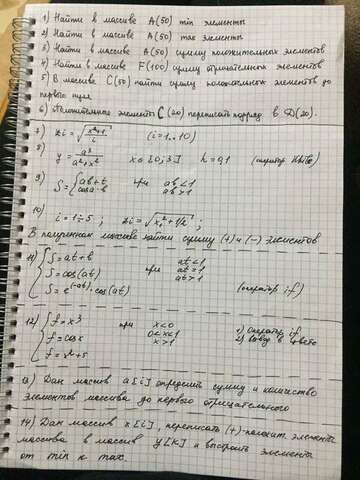 1) Найти в массиве A(50) min элементы
2) Найти в массиве A(50) max элементы
3) Найти в массиве A(50) сумму положительных элементов
4) Найти в массиве F(100) сумму отрицательных элементов
5) В массиве C(50) найти сумму положительных элементов до
первого нуля
6) Положительные элементы C(20) переписать подряд в D(20).
7) zi = √(x²+1)/i (i=1..10)
8) y = a³/(a²+x²) x∈[0;3] h=0,1 (оператор while)
9) { S = ab+t при ab<1
S = cosa·b ab>1
10) i=1÷5; zi=
В полученном массиве найти сумму (+) и (-) элементов
11) { S = at+b at<1
S = cos(at) при at=1
S = e^(-at)·cos(at) at>1 (оператор if)
12) { f = x³ при x<0 1) оператор if
f = cosx 0<x<1 2) вывод в цвете
f = x²+5 x>1
13) Дан массив a[i] определить сумму и количество
элементов массива до первого отрицательного
14) Дан массив x[i], переписать (+)-полож. элементы
массива в массив y[k] и выстроить элементы
от min к max.